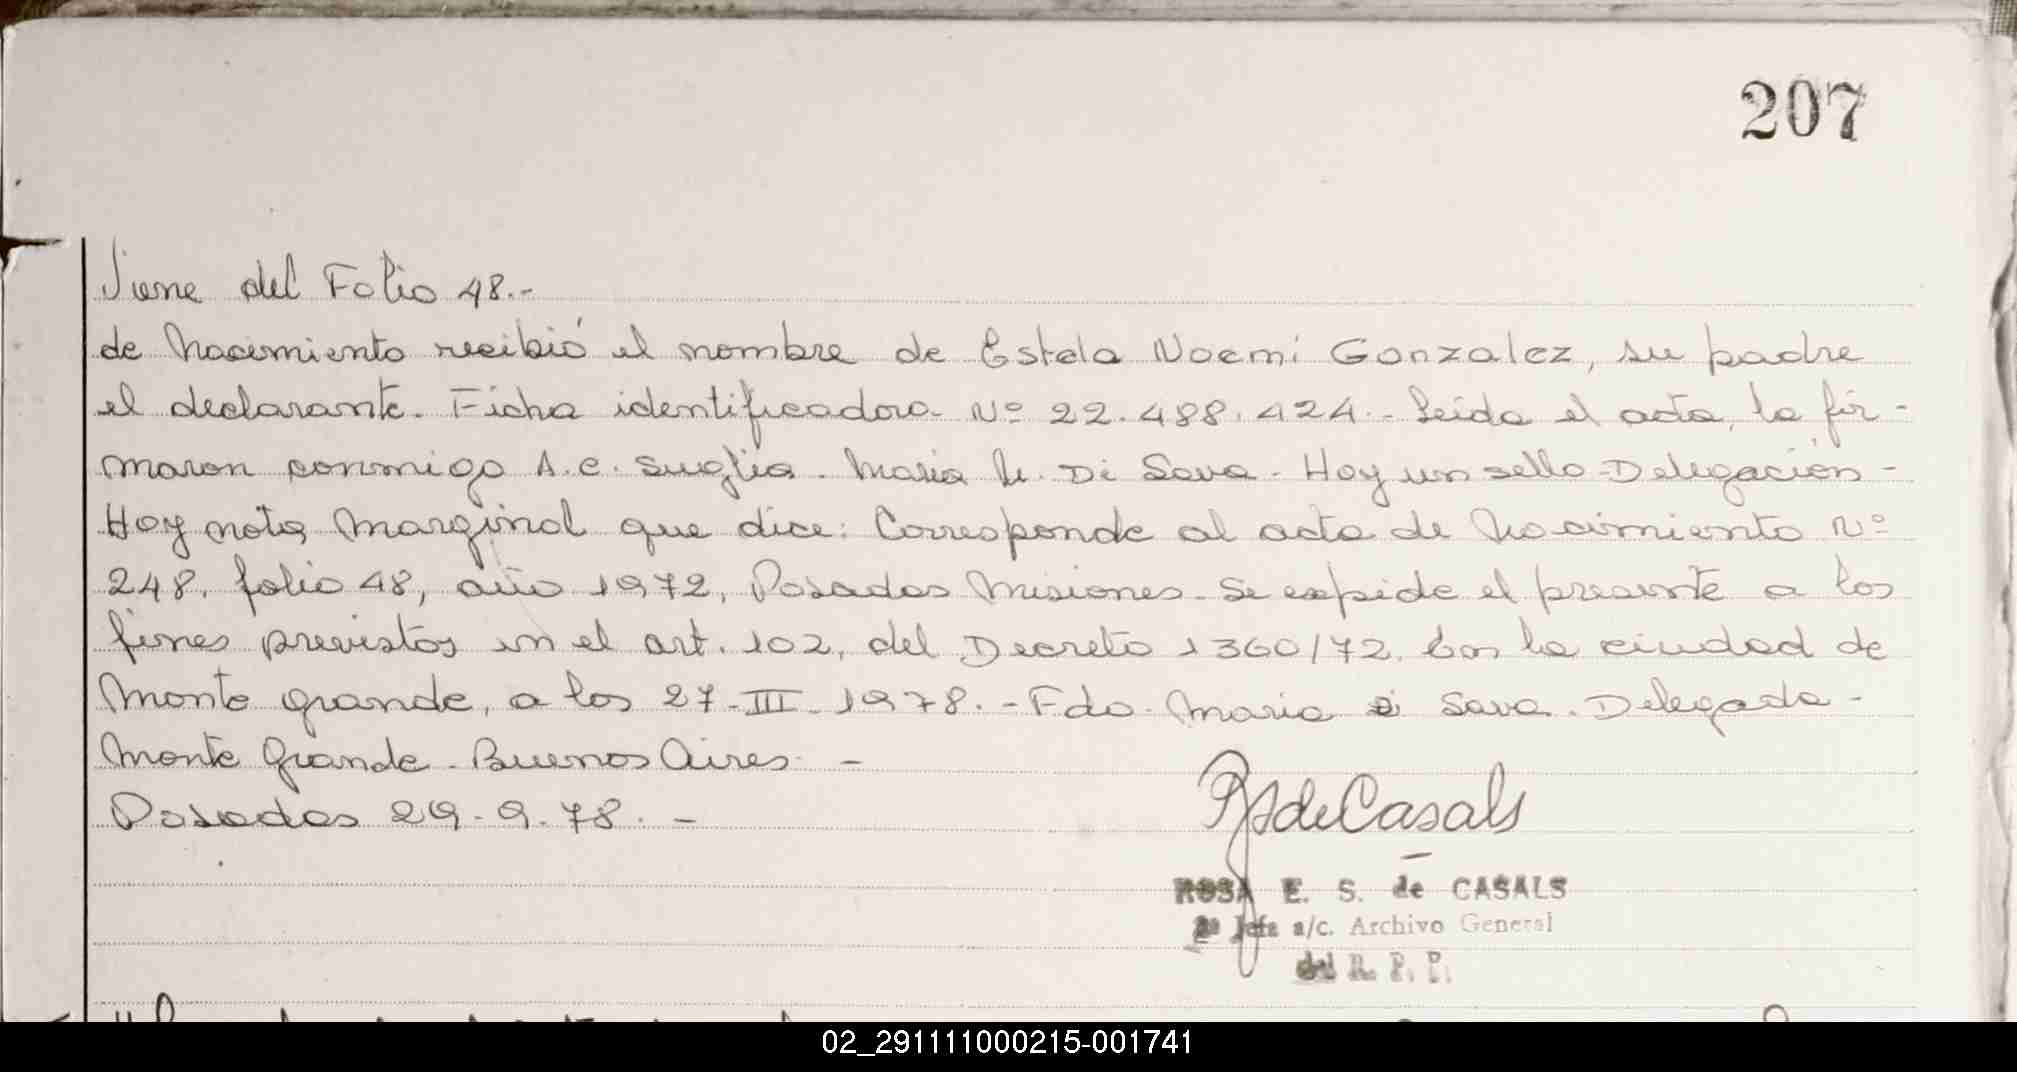 207
Viene del Folio 48.-
de Nacimiento recibió el nombre de Estela Noemi Gonzalez, su padre
el declarante. Ficha identificadora Nº 22.488.424.- Leida el acta, la fir-
maron conmigo A.C. Suglia. Maria N. Di Sava. Hay un sello Delegación-
Hay nota marginal que dice: Corresponde al acta de Nacimiento Nº
248, folio 48, año 1972, Posadas Misiones. Se expide el presente a los
fines previstos en el art. 102, del Decreto 1360/72. En la ciudad de
Monte grande, a los 27-III-1978.- Fdo. Maria di Sava. Delegada-
Monte Grande. Buenos Aires. -
Posadas 29-9-78. -
de Casals
ROSA E. S. de CASALS
2ª Jefa a/c. Archivo General
del R. P. P.
02_291111000215-001741